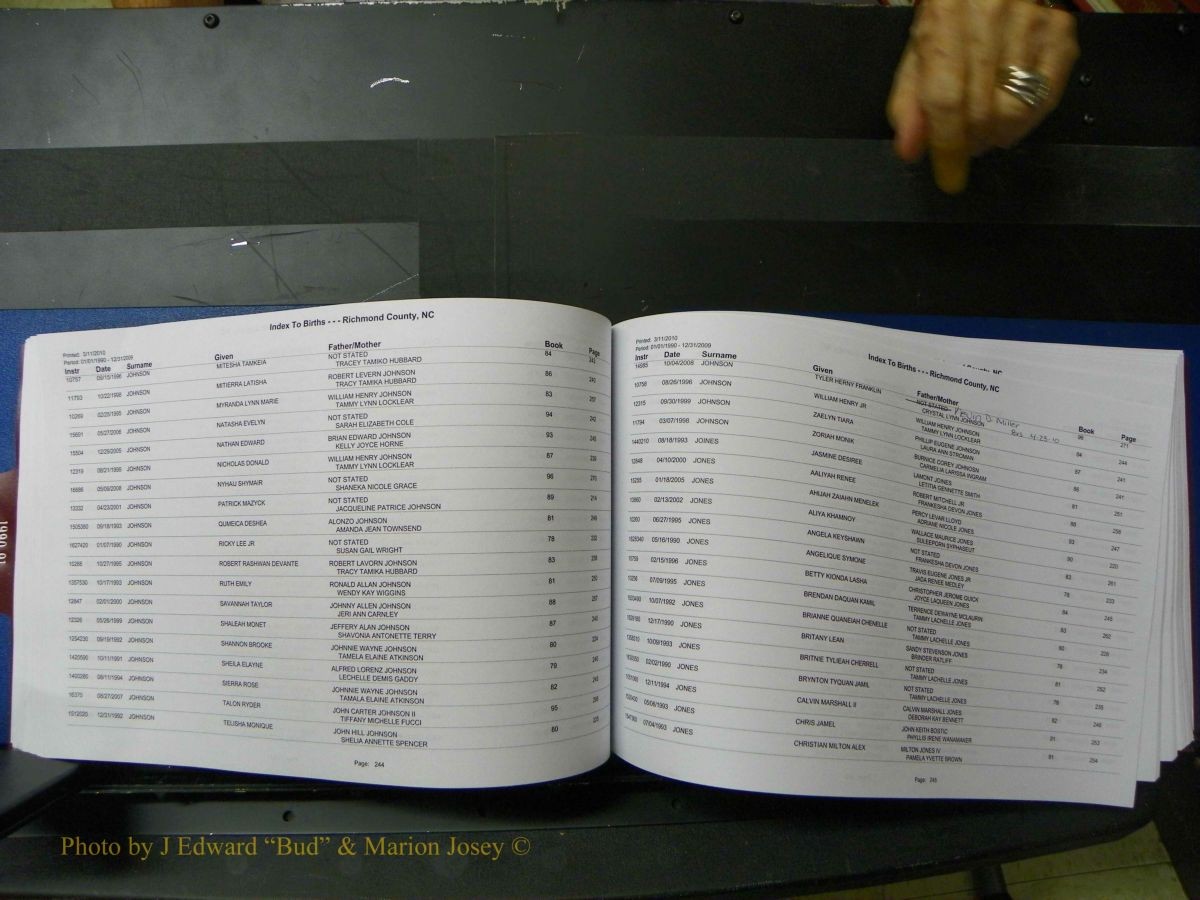 Index To Births - - - Richmond County, NC
Printed: 3/11/2010
Period: 01/01/1990 - 12/31/2009
Instr Date Surname Given Father/Mother Book Page
10757 09/15/1996 JOHNSON MITESHA TAMKEIA NOT STATED 84 243
TRACEY TAMIKO HUBBARD
11793 10/22/1998 JOHNSON MITIERRA LATISHA ROBERT LEVERN JOHNSON 86 240
TRACY TAMIKA HUBBARD
10269 02/25/1995 JOHNSON MYRANDA LYNN MARIE WILLIAM HENRY JOHNSON 83 257
TAMMY LYNN LOCKLEAR
15691 05/27/2006 JOHNSON NATASHA EVELYN NOT STATED 94 242
SARAH ELIZABETH COLE
15504 12/25/2005 JOHNSON NATHAN EDWARD BRIAN EDWARD JOHNSON 93 245
KELLY JOYCE HORNE
12319 08/21/1999 JOHNSON NICHOLAS DONALD WILLIAM HENRY JOHNSON 87
TAMMY LYNN LOCKLEAR
16686 05/06/2008 JOHNSON NYHAU SHYMAIR NOT STATED 96
SHANEKA NICOLE GRACE
13332 04/23/2001 JOHNSON PATRICK MAZYCK NOT STATED 89 214
JACQUELINE PATRICE JOHNSON
1505380 09/18/1993 JOHNSON QUMEICA DESHEA ALONZO JOHNSON 81
AMANDA JEAN TOWNSEND
1627420 01/07/1990 JOHNSON RICKY LEE JR NOT STATED 78
SUSAN GAIL WRIGHT
10288 10/27/1995 JOHNSON ROBERT RASHWAN DEVANTE ROBERT LAVORN JOHNSON 83
TRACY TAMIKA HUBBARD
1357530 10/17/1993 JOHNSON RUTH EMILY RONALD ALLAN JOHNSON 81
WENDY KAY WIGGINS
12847 02/01/2000 JOHNSON SAVANNAH TAYLOR JOHNNY ALLEN JOHNSON 88
JERI ANN CARNLEY
12326 05/26/1999 JOHNSON SHALEAH MONET JEFFERY ALAN JOHNSON 87
SHAVONIA ANTONETTE TERRY
1254230 09/19/1992 JOHNSON SHANNON BROOKE JOHNNIE WAYNE JOHNSON 80
TAMELA ELAINE ATKINSON
1420590 10/11/1991 JOHNSON SHEILA ELAYNE ALFRED LORENZO JOHNSON 79
LECHELLE DEMIS GADDY
1400280 08/11/1994 JOHNSON SIERRA ROSE JOHNNIE WAYNE JOHNSON 82
TAMALA ELAINE ATKINSON
16375 08/27/2007 JOHNSON TALON RYDER JOHN CARTER JOHNSON II 95
TIFFANY MICHELLE FUCCI
1512020 12/31/1992 JOHNSON TELISHA MONIQUE JOHN HILL JOHNSON 80
SHELIA ANNETTE SPENCER
Page: 244
County, NC
Index To Births - - - Richmond County, NC
Printed: 3/11/2010
Period: 01/01/1990 - 12/31/2009
Instr Date Surname Given Father/Mother Book Page
10/04/2008 JOHNSON TYLER HERNY FRANKLIN NOT STATED Kevin D. Miller 96 271
CRYSTAL LYNN JOHNSON 4-23-10
10758 08/26/1996 JOHNSON WILLIAM HENRY JR WILLIAM HENRY JOHNSON 84 244
TAMMY LYNN LOCKLEAR
12315 09/30/1999 JOHNSON ZAELYN TIARA PHILLIP EUGENE JOHNSON 87 241
LAURA ANN STROMAN
11794 03/07/1998 JOHNSON ZORIAH MONIK BURNICE COREY JOHNOSN 86 241
CARMELIA LARISSA INGRAM
1440210 08/18/1993 JOINES JASMINE DESIREE LAMONT JONES 81 251
LETITIA GENNETTE SMITH
12848 04/10/2000 JONES AALIYAH RENEE ROBERT MITCHELL JR 88
FRANKESHA DEVON JONES
15285 01/18/2005 JONES AHIJAH ZAIAHN MENELEK PERCY LEVAR LLOYD 93 247
ADRIANE NICOLE JONES
02/13/2002 JONES ALIYA KHAMNOY WALLACE MAURICE JONES 90 220
SULEEPORN SYPHASEUT
10260 06/27/1995 JONES ANGELA KEYSHAWN NOT STATED 83 261
FRANKESHA DEVON JONES
05/16/1990 JONES ANGELIQUE SYMONE TRAVIS EUGENE JONES JR 78 233
JADA RENEE MEDLEY
10759 02/15/1996 JONES BETTY KIONDA LASHA CHRISTOPHER JEROME QUICK 84
JOYCE LAQUEEN JONES
10256 07/09/1995 JONES BRENDAN DAQUAN KAMIL TERRENCE DEWAYNE MCLAURIN 83 262
TAMMY LACHELLE JONES
10/07/1992 JONES BRIANNE QUANEIAH CHENELLE NOT STATED 80
TAMMY LACHELLE JONES
12/17/1990 JONES BRITANY LEAN SANDY STEVENSON JONES 78 234
BRINDER RATLIFF
10/09/1993 JONES BRITNIE TYLIEAH CHERRELL NOT STATED 81 252
TAMMY LACHELLE JONES
02/02/1990 JONES BRYNTON TYQUAN JAMIL NOT STATED 78 235
TAMMY LACHELLE JONES
12/11/1994 JONES CALVIN MARSHALL II CALVIN MARSHALL JONES 82
DEBORAH KAY BENNETT
05/06/1993 JONES CHRIS JAMEL JOHN KEITH BOSTIC 81 253
PHYLLIS IRENE WANAMAKER
07/04/1993 JONES CHRISTIAN MILTON ALEX MILTON JONES IV 81 254
PAMELA YVETTE BROWN
Page: 245
Photo by J Edward “Bud” & Marion Josey ©